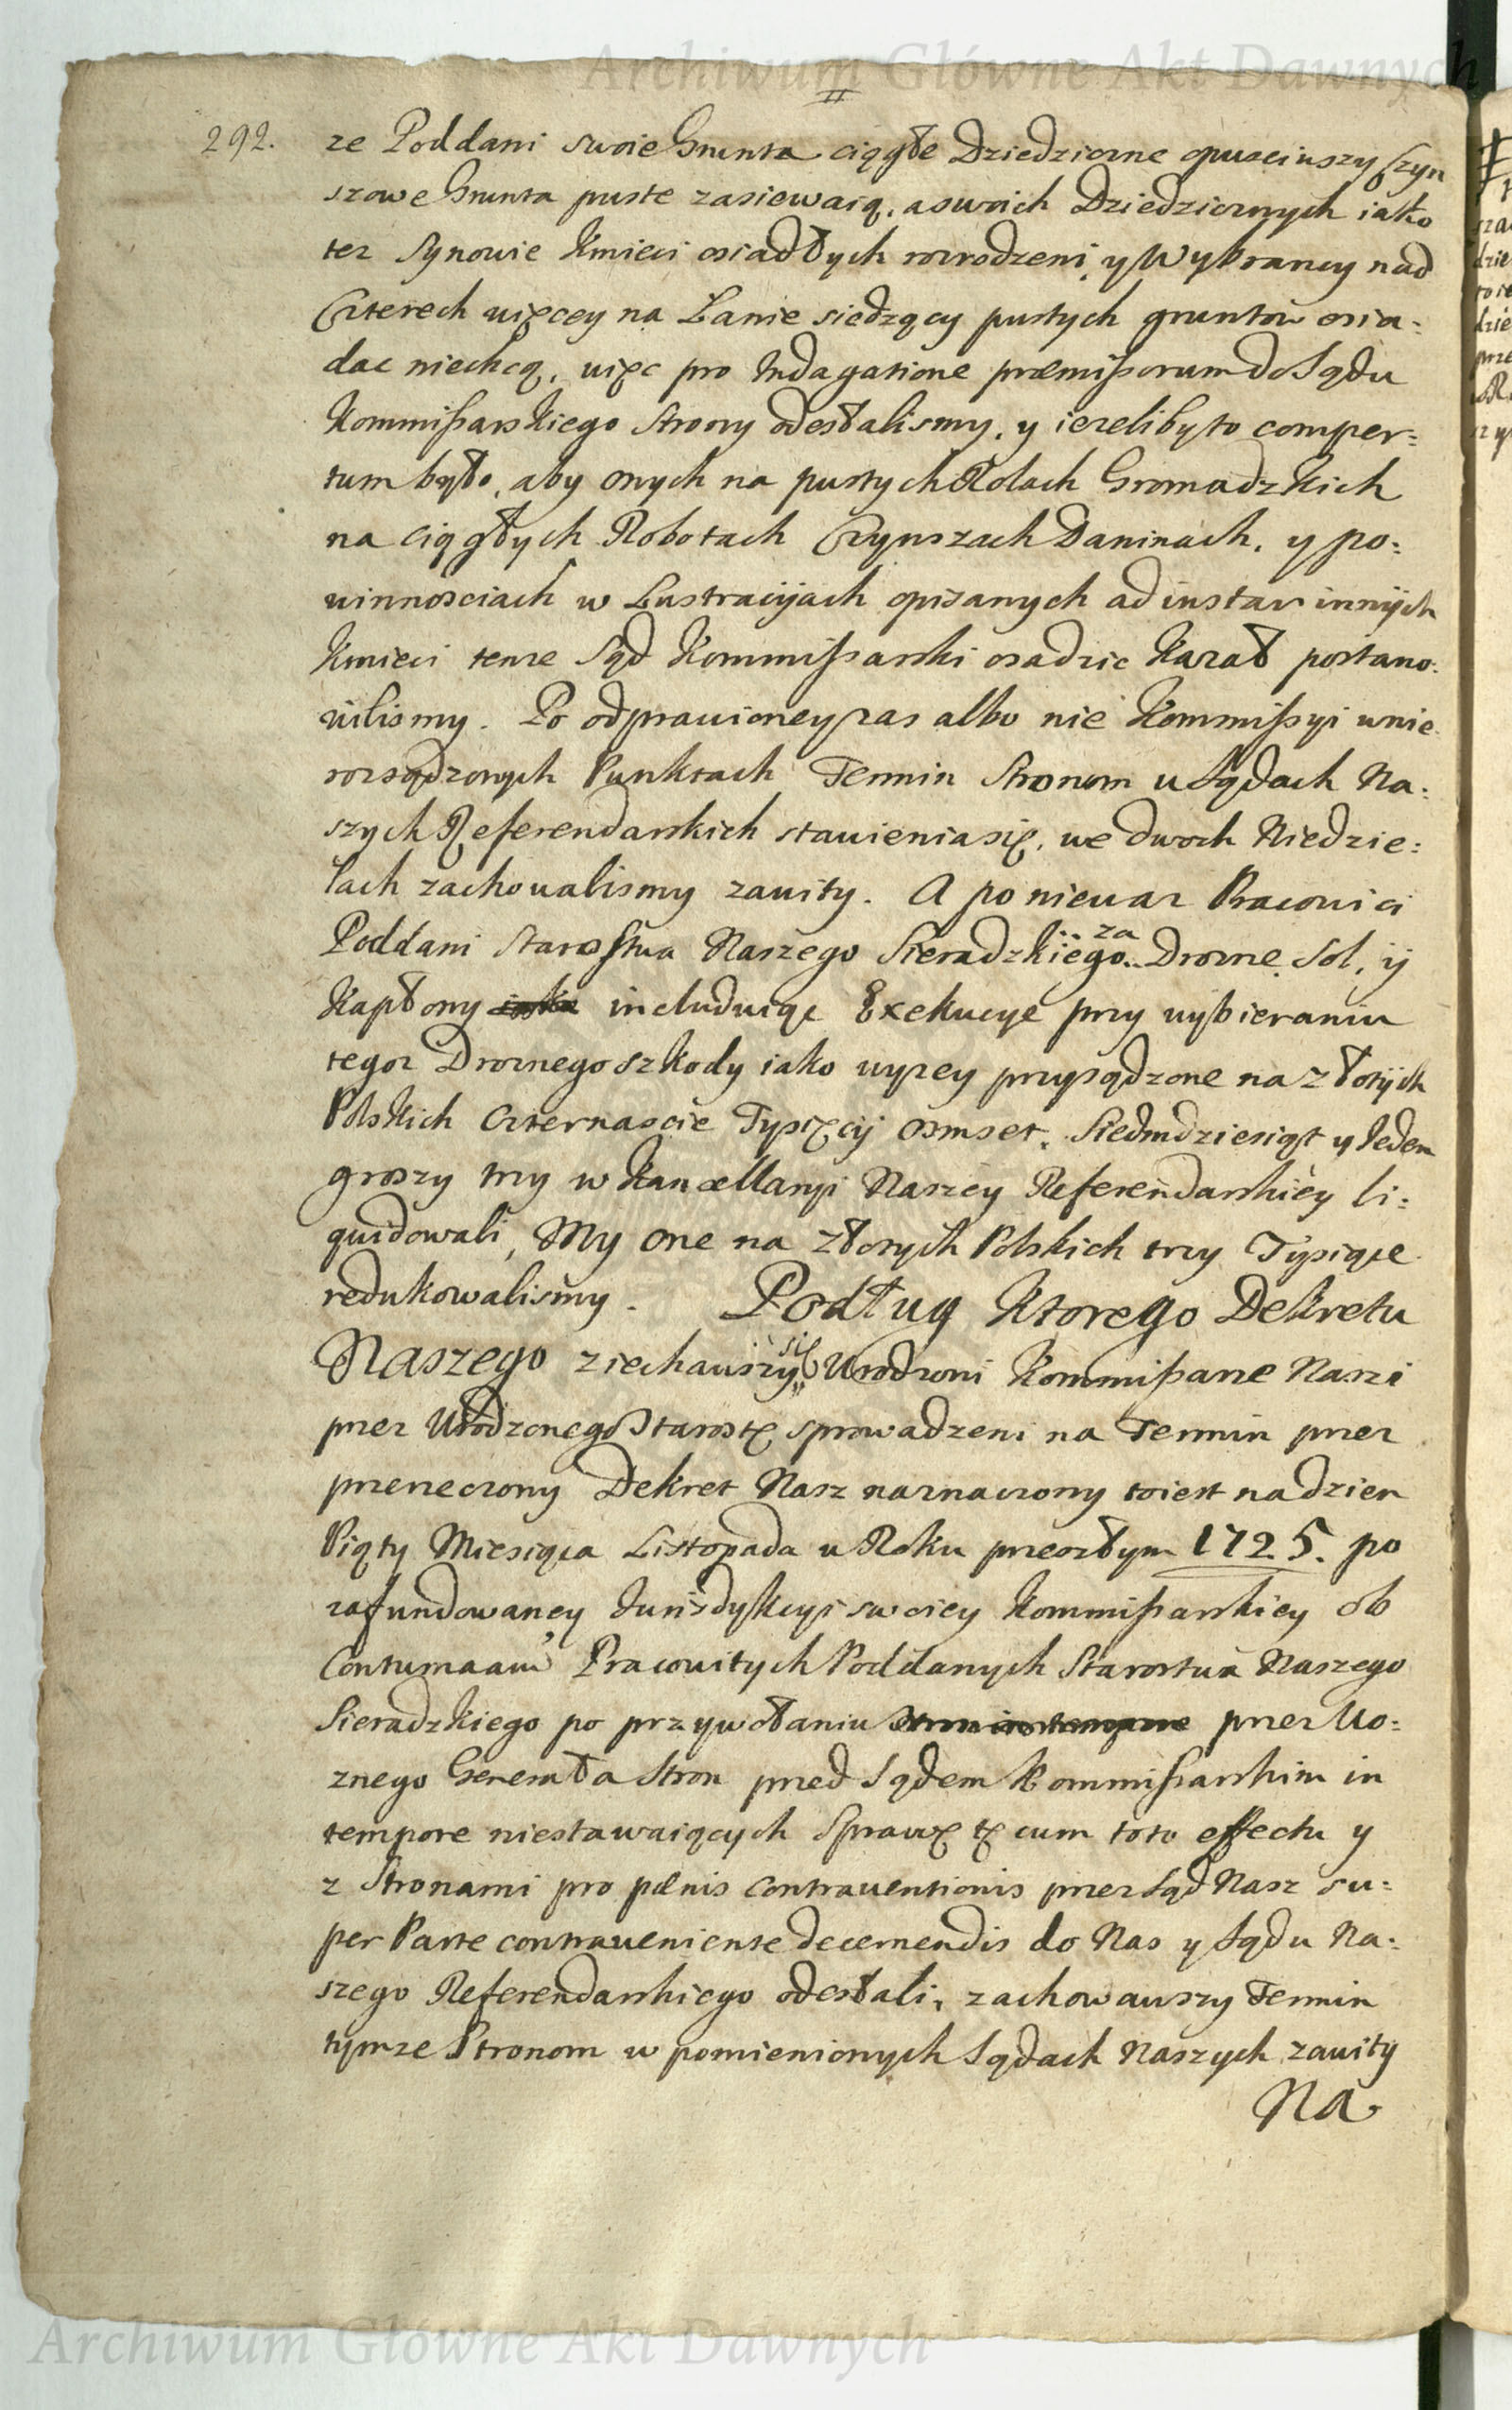 Archiwum Główne Akt Dawnych
292.
ze Poddani swoie Grunta ciągłe Dziedziczne opusciwszy Czyn
szowe Grunta puste zasiewaią, a swoich Dziedzicznych iako
tez Synowie Kmieci osiadłych rozrodzeni, y Wybrancy nad
Czterech więcey na Łanie siedzący pustych gruntow osia:
dac niechcą, więc pro Indagatione præmissorum do Sądu
Kommissarskiego Strony odesłalismy, y iezeliby to comper:
tum było, aby onych na pustych Rolach Gromadzkich
na ciągłych Robotach Czynszach Daninach, y po:
winnosciach w Lustracyiach opisanych ad instar innÿch
Kmieci tenze Sąd Kommissarski osadzic kazał postano:
wilismy. Po odprawioney zas albo nie Kommissyi w nie
rozsądzonych Punktach Termin Stronom w Sądach Na:
szych Referendarskich stawienia się, we dwoch Niedzie:
lach zachowalismy zawity. A poniewaz Pracowici
Poddani Starostwa Naszego Sieradzkiego za Drozne, Sol, ÿ
Kapłony includuiąc Exekucye przy wybieraniu
tegoz Droznego szkody iako wyzey przysądzone na złotÿch
Polskich czternascie Tysięcÿ osmset, Siedmdziesiąt y Jeden
groszy trzy w Kancellaryi Naszey Referendarskiey li:
quidowali, My one na złotych Polskich trzy Tysiące
redukowalismy. Podług ktorego Dekretu
Naszego ziechawszy się Urodzoni Kommissarze Naszi
przez Urodzonego Starostę sprowadzeni na Termin przez
przerzeczony Dekret Nasz naznaczony toiest na dzien
Piąty Miesiąca Listopada w Roku przeszłym 1725. po
zafundowaney Jurisdykcyi swoiey Kommissarskiey ob
Contumaciam Pracowitych Poddanych Starostwa Naszego
Sieradzkiego po przywołaniu przez Wo:
znego Generała Stron przed Sądem Kommissarskim in
tempore niestawaiących Sprawę tę cum toto effectu y
z Stronami pro pænis contraventionis przez Sąd Nasz su:
per Parte contraveniente decernendis do Nas y Sądu Na:
szego Referendarskiego odesłali, zachowawszy Termin
tymze Stronom w pomienionych Sądach Naszych zawity
Na
Archiwum Główne Akt Dawnych